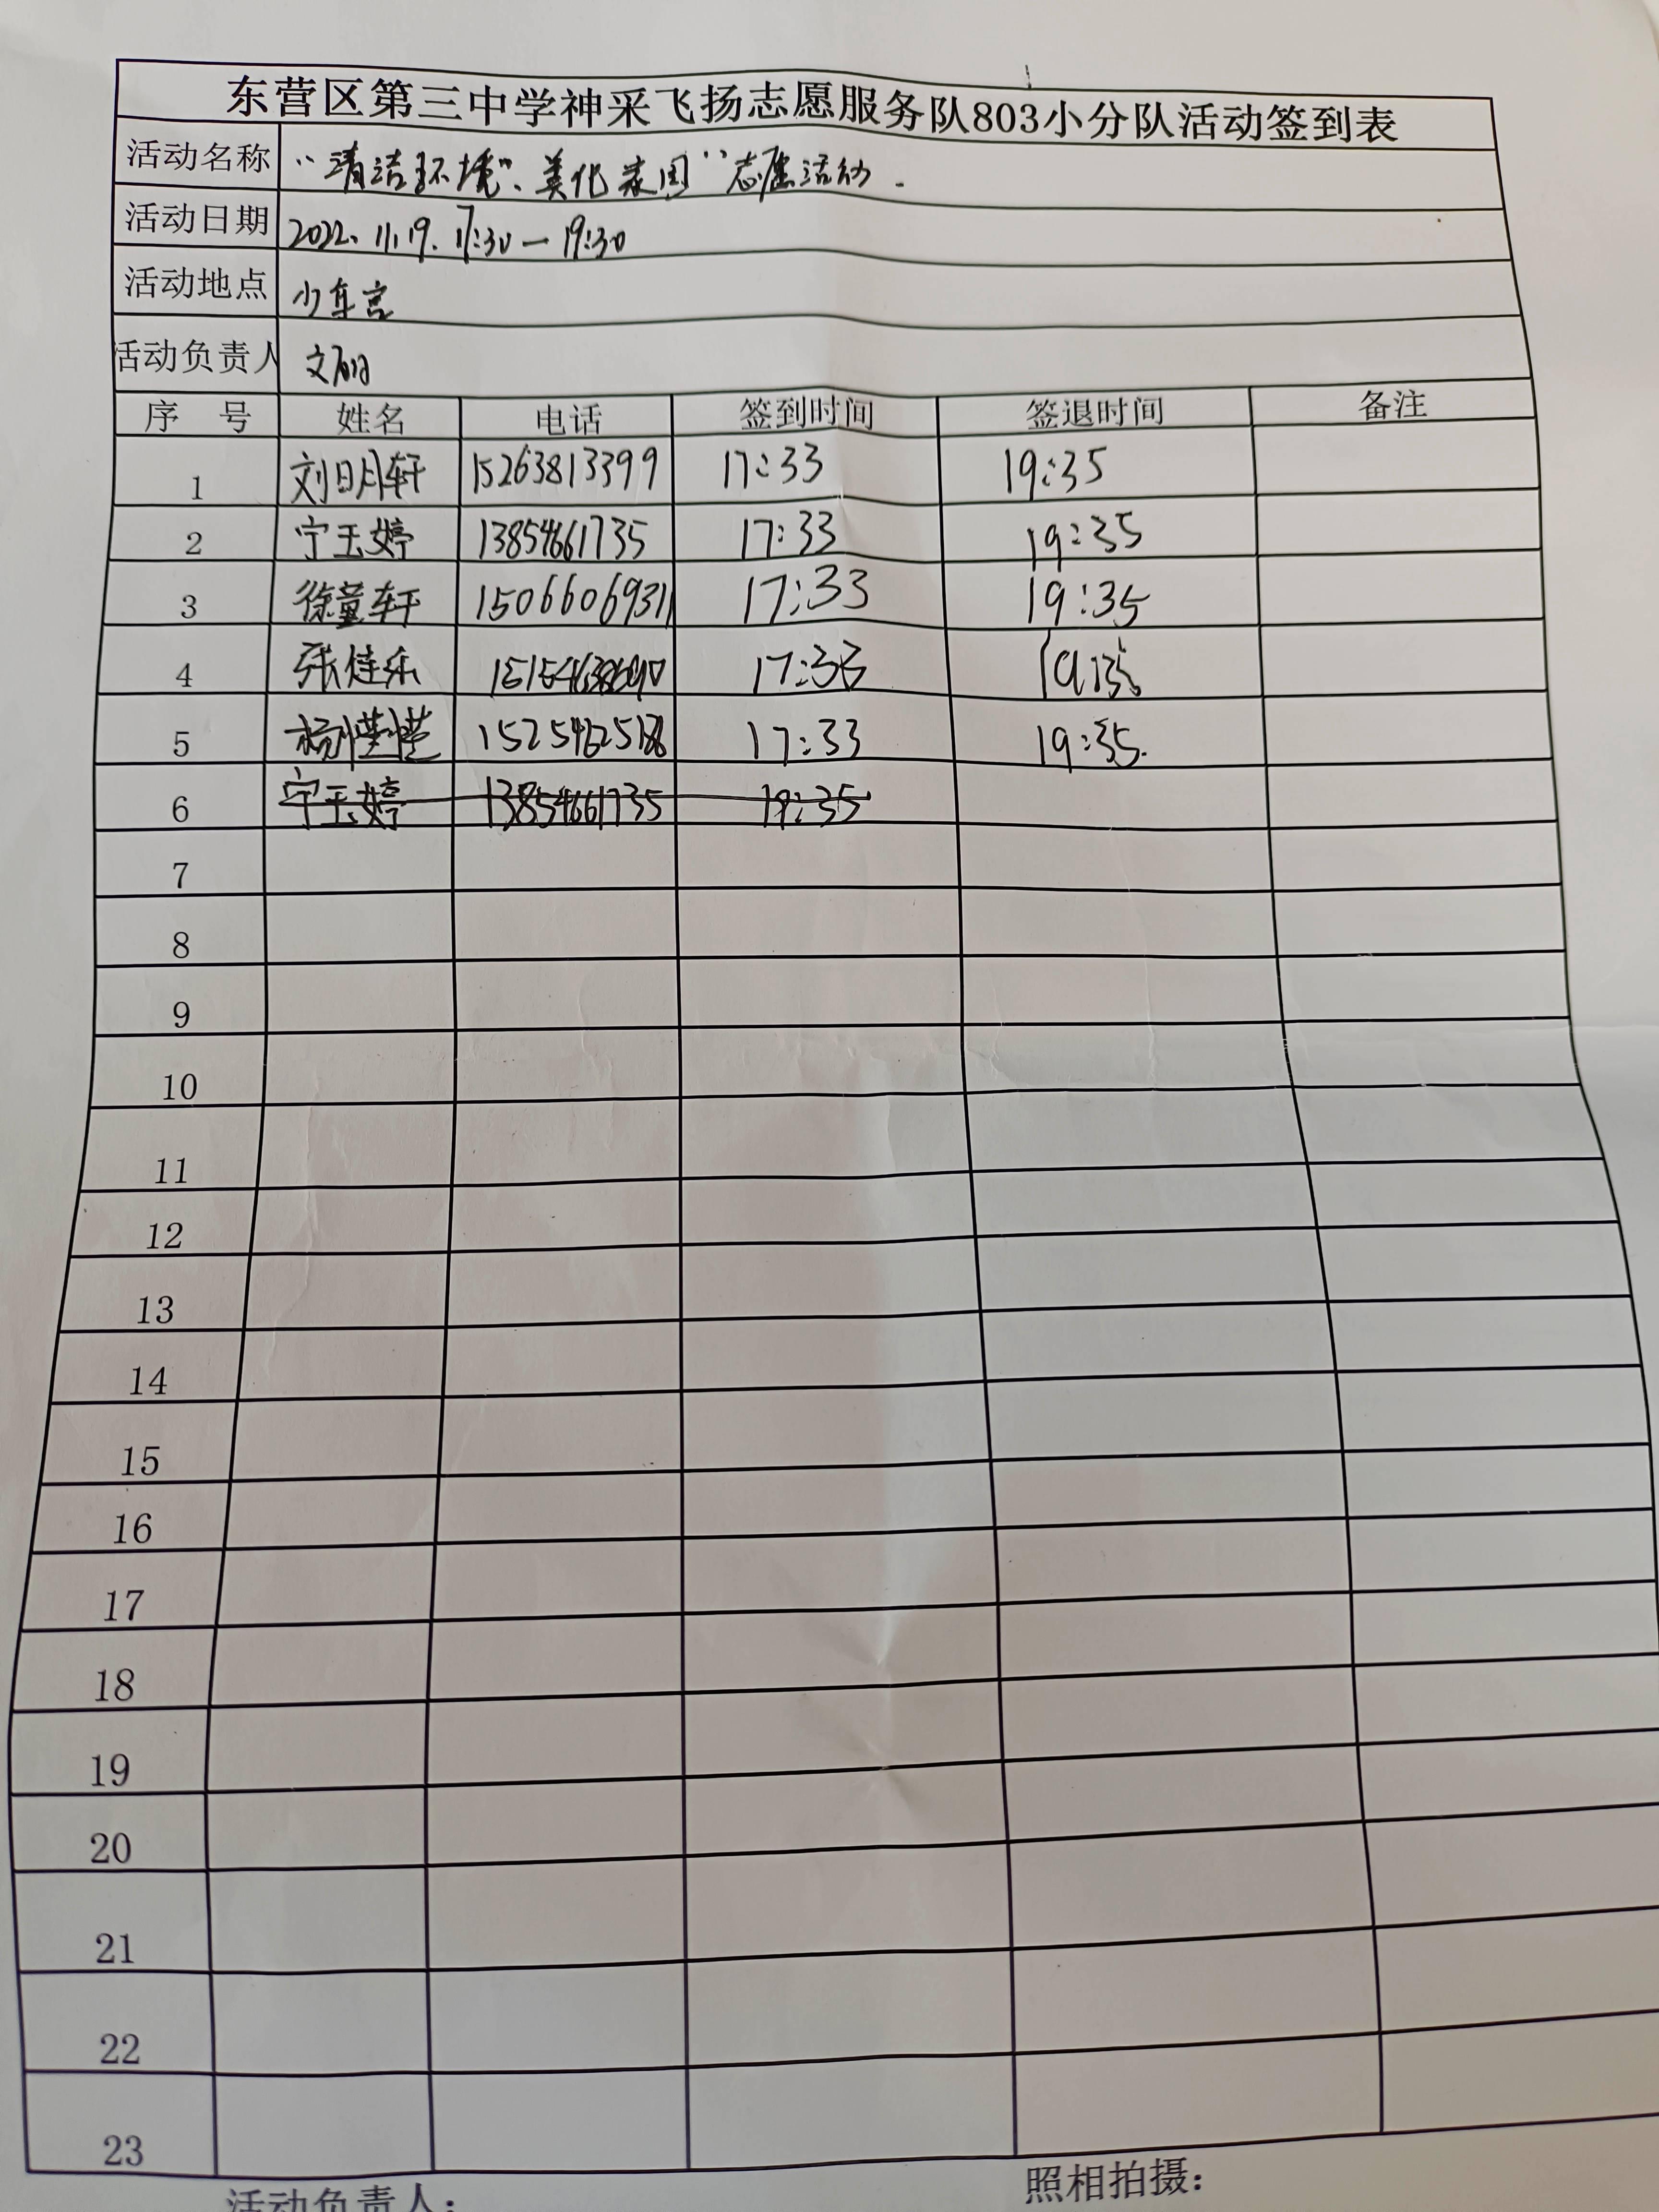 东营区第三中学神采飞扬志愿服务队803小分队活动签到表
活动名称 “清洁环境”、美化家园”志愿活动.
活动日期 2022.11.19.17:30—19:30
活动地点 少年宫
活动负责人 文
序 号 姓名 电话 签到时间 签退时间 备注
1 刘明轩 15263813399 17:33 19:35
2 宁玉婷 13854661735 17:33 19:35
3 徐童轩 15066069311 17:33 19:35
4 张佳乐 17:33 19:35
5 杨 17:33 19:35.
6 宁玉婷 13854661735 19:35
7
8
9
10
11
12
13
14
15
16
17
18
19
20
21
22
23
活动负责人： 照相拍摄：